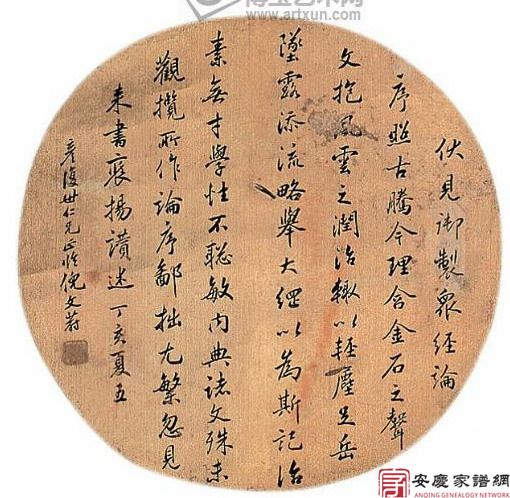 www.artxun.com
伏見御製衆經論
序照古騰今理含金石之聲
文抱風雲之潤治輒以輕塵足岳
墜露添流略舉大綱以為斯記治
素無才學性不聰敏內典諸文殊未
觀攬所作論序鄙拙尤繁忽見
来書襃揚讚述丁亥夏五
彥復世仁兄正倪文蔚
安慶家譜網
ANQING GENEALOGY NETWORK